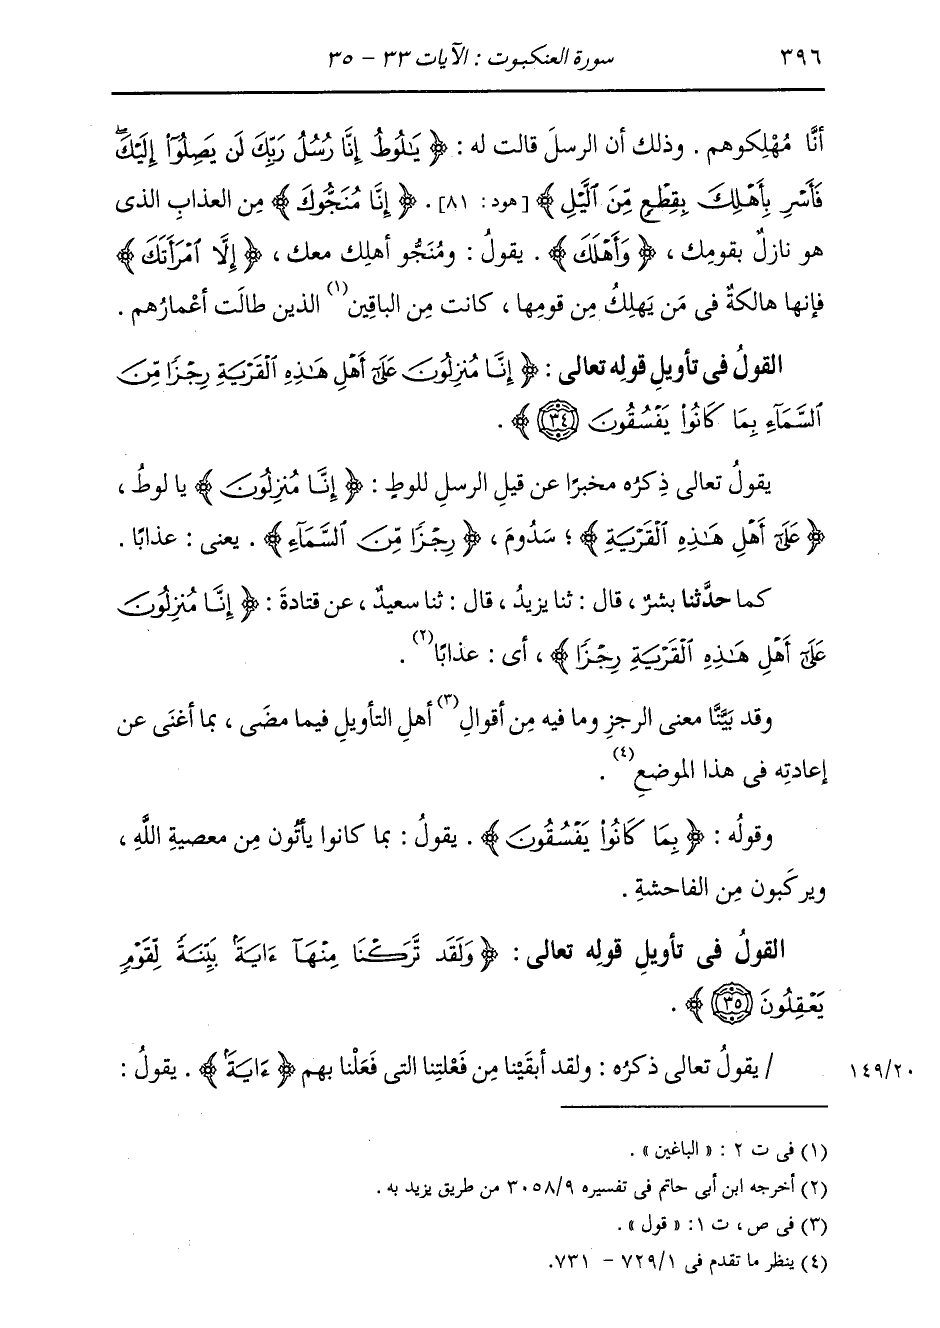 ٣٩٦ سورة العنكبوت : الآيات ٣٣ - ٣٥
أنَّا مُهْلِكوهم . وذلك أن الرسلَ قالت له : ﴿ يَٰلُوطُ إِنَّا رُسُلُ رَبِّكَ لَن يَصِلُوٓا۟ إِلَيْكَ ۖ
فَأَسْرِ بِأَهْلِكَ بِقِطْعٍ مِّنَ ٱلَّيْلِ ﴾ [هود: ٨١] . ﴿ إِنَّا مُنَجُّوكَ ﴾ مِن العذابِ الذى
هو نازلٌ بقومِك ، ﴿ وَأَهْلَكَ ﴾ . يقولُ : ومُنَجُّو أهلِك معك ، ﴿ إِلَّا ٱمْرَأَتَكَ ﴾
فإنها هالكةٌ فى مَن يَهلِكُ مِن قومِها ، كانت مِن الباقِين(١) الذين طالَت أعْمارُهم .
القولُ فى تأويلِ قولِه تعالى : ﴿ إِنَّا مُنزِلُونَ عَلَىٰٓ أَهْلِ هَٰذِهِ ٱلْقَرْيَةِ رِجْزًا مِّنَ
ٱلسَّمَآءِ بِمَا كَانُوا۟ يَفْسُقُونَ ﴿٣٤﴾ ﴾ .
يقولُ تعالى ذِكرُه مخبرًا عن قيلِ الرسلِ للوطٍ : ﴿ إِنَّا مُنزِلُونَ ﴾ يا لوطُ ،
﴿ عَلَىٰٓ أَهْلِ هَٰذِهِ ٱلْقَرْيَةِ ﴾ ؛ سَدُومَ ، ﴿ رِجْزًا مِّنَ ٱلسَّمَآءِ ﴾ . يعنى : عذابًا .
كما حدَّثنا بشرٌ ، قال : ثنا يزيدُ ، قال : ثنا سعيدٌ ، عن قتادةَ : ﴿ إِنَّا مُنزِلُونَ
عَلَىٰٓ أَهْلِ هَٰذِهِ ٱلْقَرْيَةِ رِجْزًا ﴾ ، أى : عذابًا(٢) .
وقد بَيَّنَّا معنى الرجزِ وما فيه مِن أقوالِ(٣) أهلِ التأويلِ فيما مضَى ، بما أغنَى عن
إعادتِه فى هذا الموضعِ(٤) .
وقولُه : ﴿ بِمَا كَانُوا۟ يَفْسُقُونَ ﴾ . يقولُ : بما كانوا يأتُون مِن معصيةِ اللَّهِ ،
ويركَبون مِن الفاحشةِ .
القولُ فى تأويلِ قولِه تعالى : ﴿ وَلَقَد تَّرَكْنَا مِنْهَآ ءَايَةًۢ بَيِّنَةً لِّقَوْمٍ
يَعْقِلُونَ ﴿٣٥﴾ ﴾ .
١٤٩/٢٠ / يقولُ تعالى ذكرُه : ولقد أبقَيْنا مِن فَعْلتِنا التى فَعَلْنا بهم ﴿ ءَايَةًۢ ﴾ . يقولُ :
(١) فى ت ٢ : « الباغين » .
(٢) أخرجه ابن أبى حاتم فى تفسيره ٣٠٥٨/٩ من طريق يزيد به .
(٣) فى ص ، ت ١: « قول » .
(٤) ينظر ما تقدم فى ٧٢٩/١ - ٧٣١.